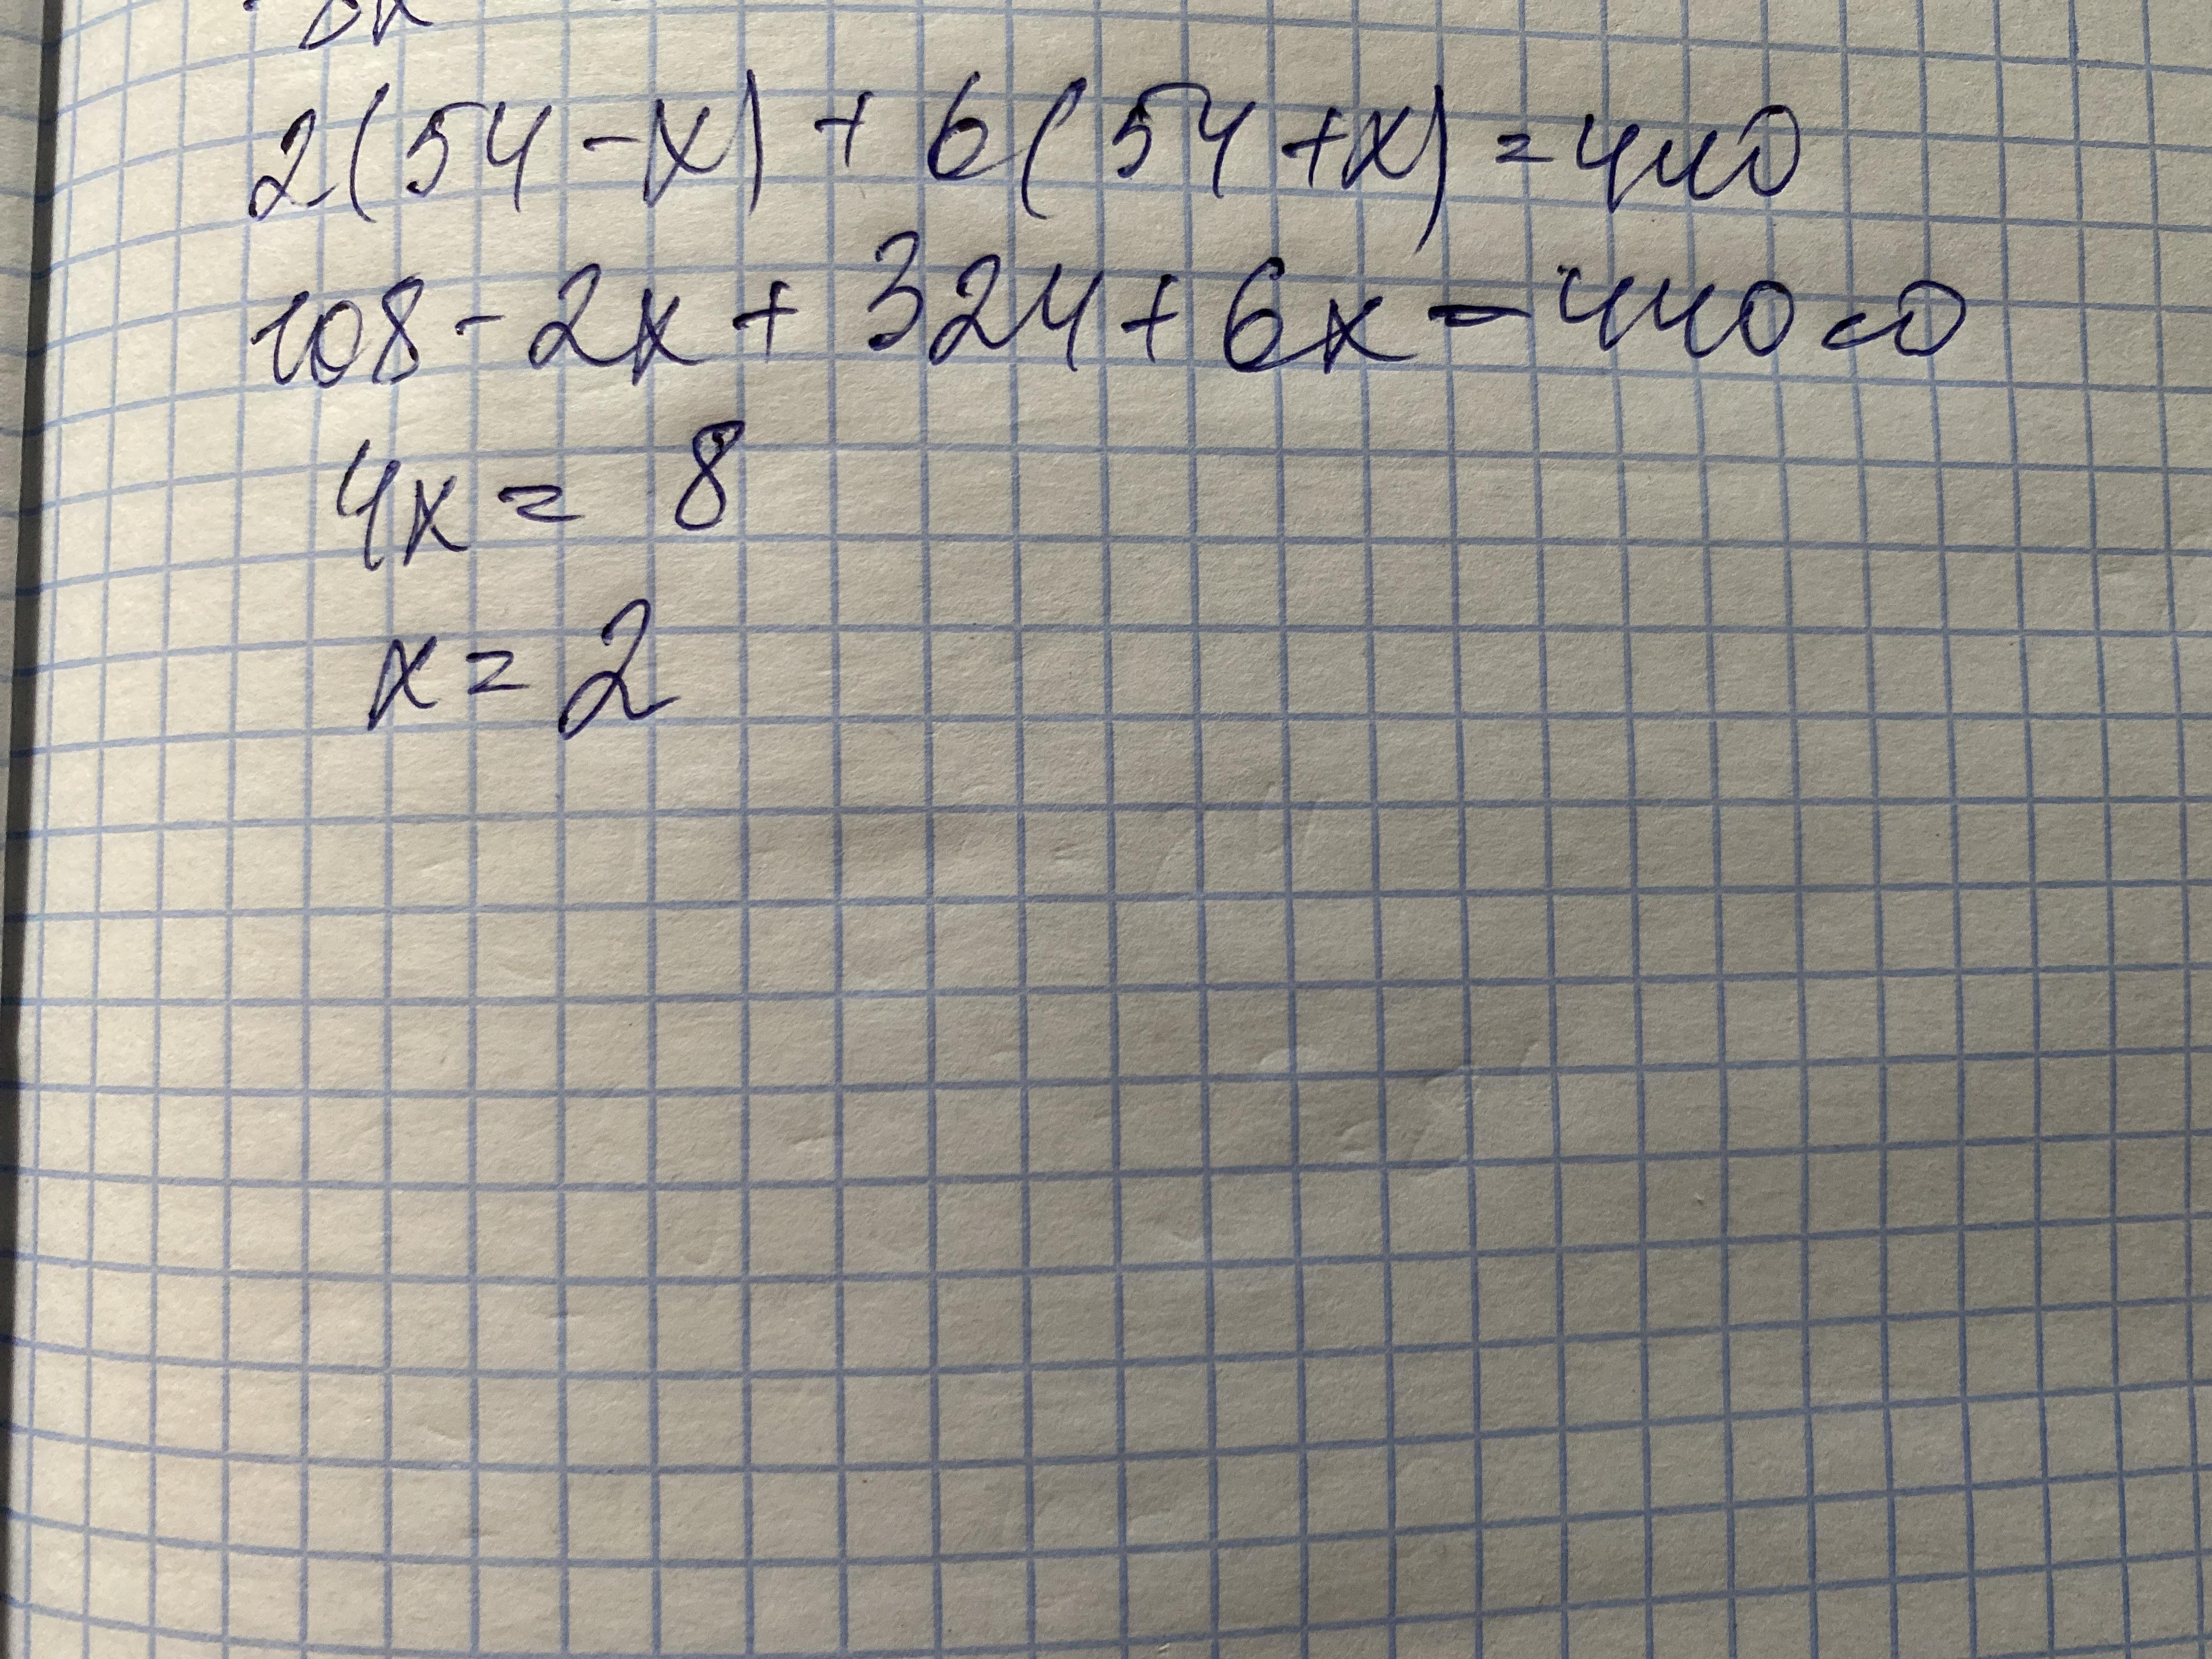 2(54-x)+6(54+x)=440
108-2x+324+6x-440=0
4x=8
x=2